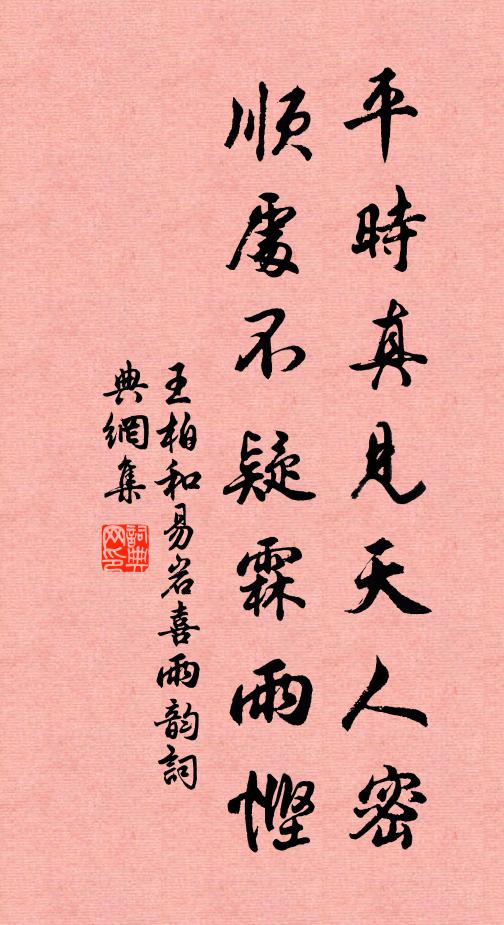 平時真見天人密
順處不疑霖雨慳
王柏和易岩喜雨韵詞
典網集
詞典
网印